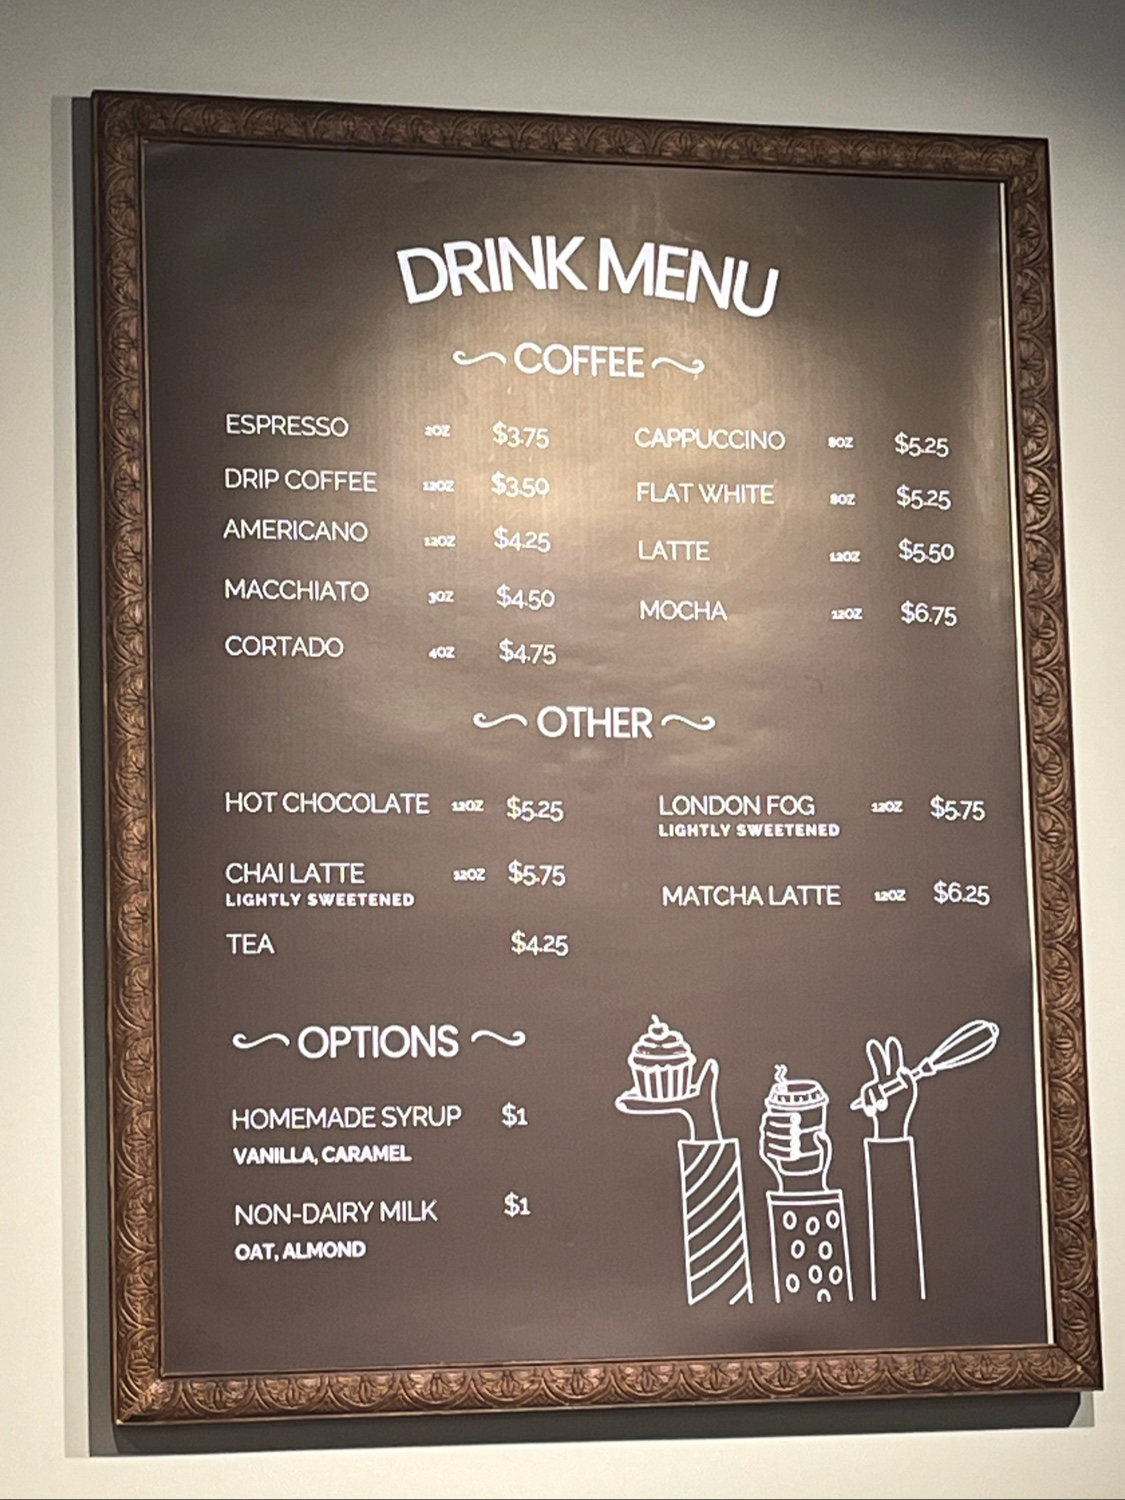 DRINK MENU
COFFEE
ESPRESSO 2OZ $3.75
DRIP COFFEE 12OZ $3.50
AMERICANO 12OZ $4.25
MACCHIATO 3OZ $4.50
CORTADO 4OZ $4.75
CAPPUCCINO 8OZ $5.25
FLAT WHITE 8OZ $5.25
LATTE 12OZ $5.50
MOCHA 12OZ $6.75
OTHER
HOT CHOCOLATE 12OZ $5.25
CHAI LATTE 12OZ $5.75
LIGHTLY SWEETENED
TEA $4.25
LONDON FOG 12OZ $5.75
LIGHTLY SWEETENED
MATCHA LATTE 12OZ $6.25
OPTIONS
HOMEMADE SYRUP $1
VANILLA, CARAMEL
NON-DAIRY MILK $1
OAT, ALMOND